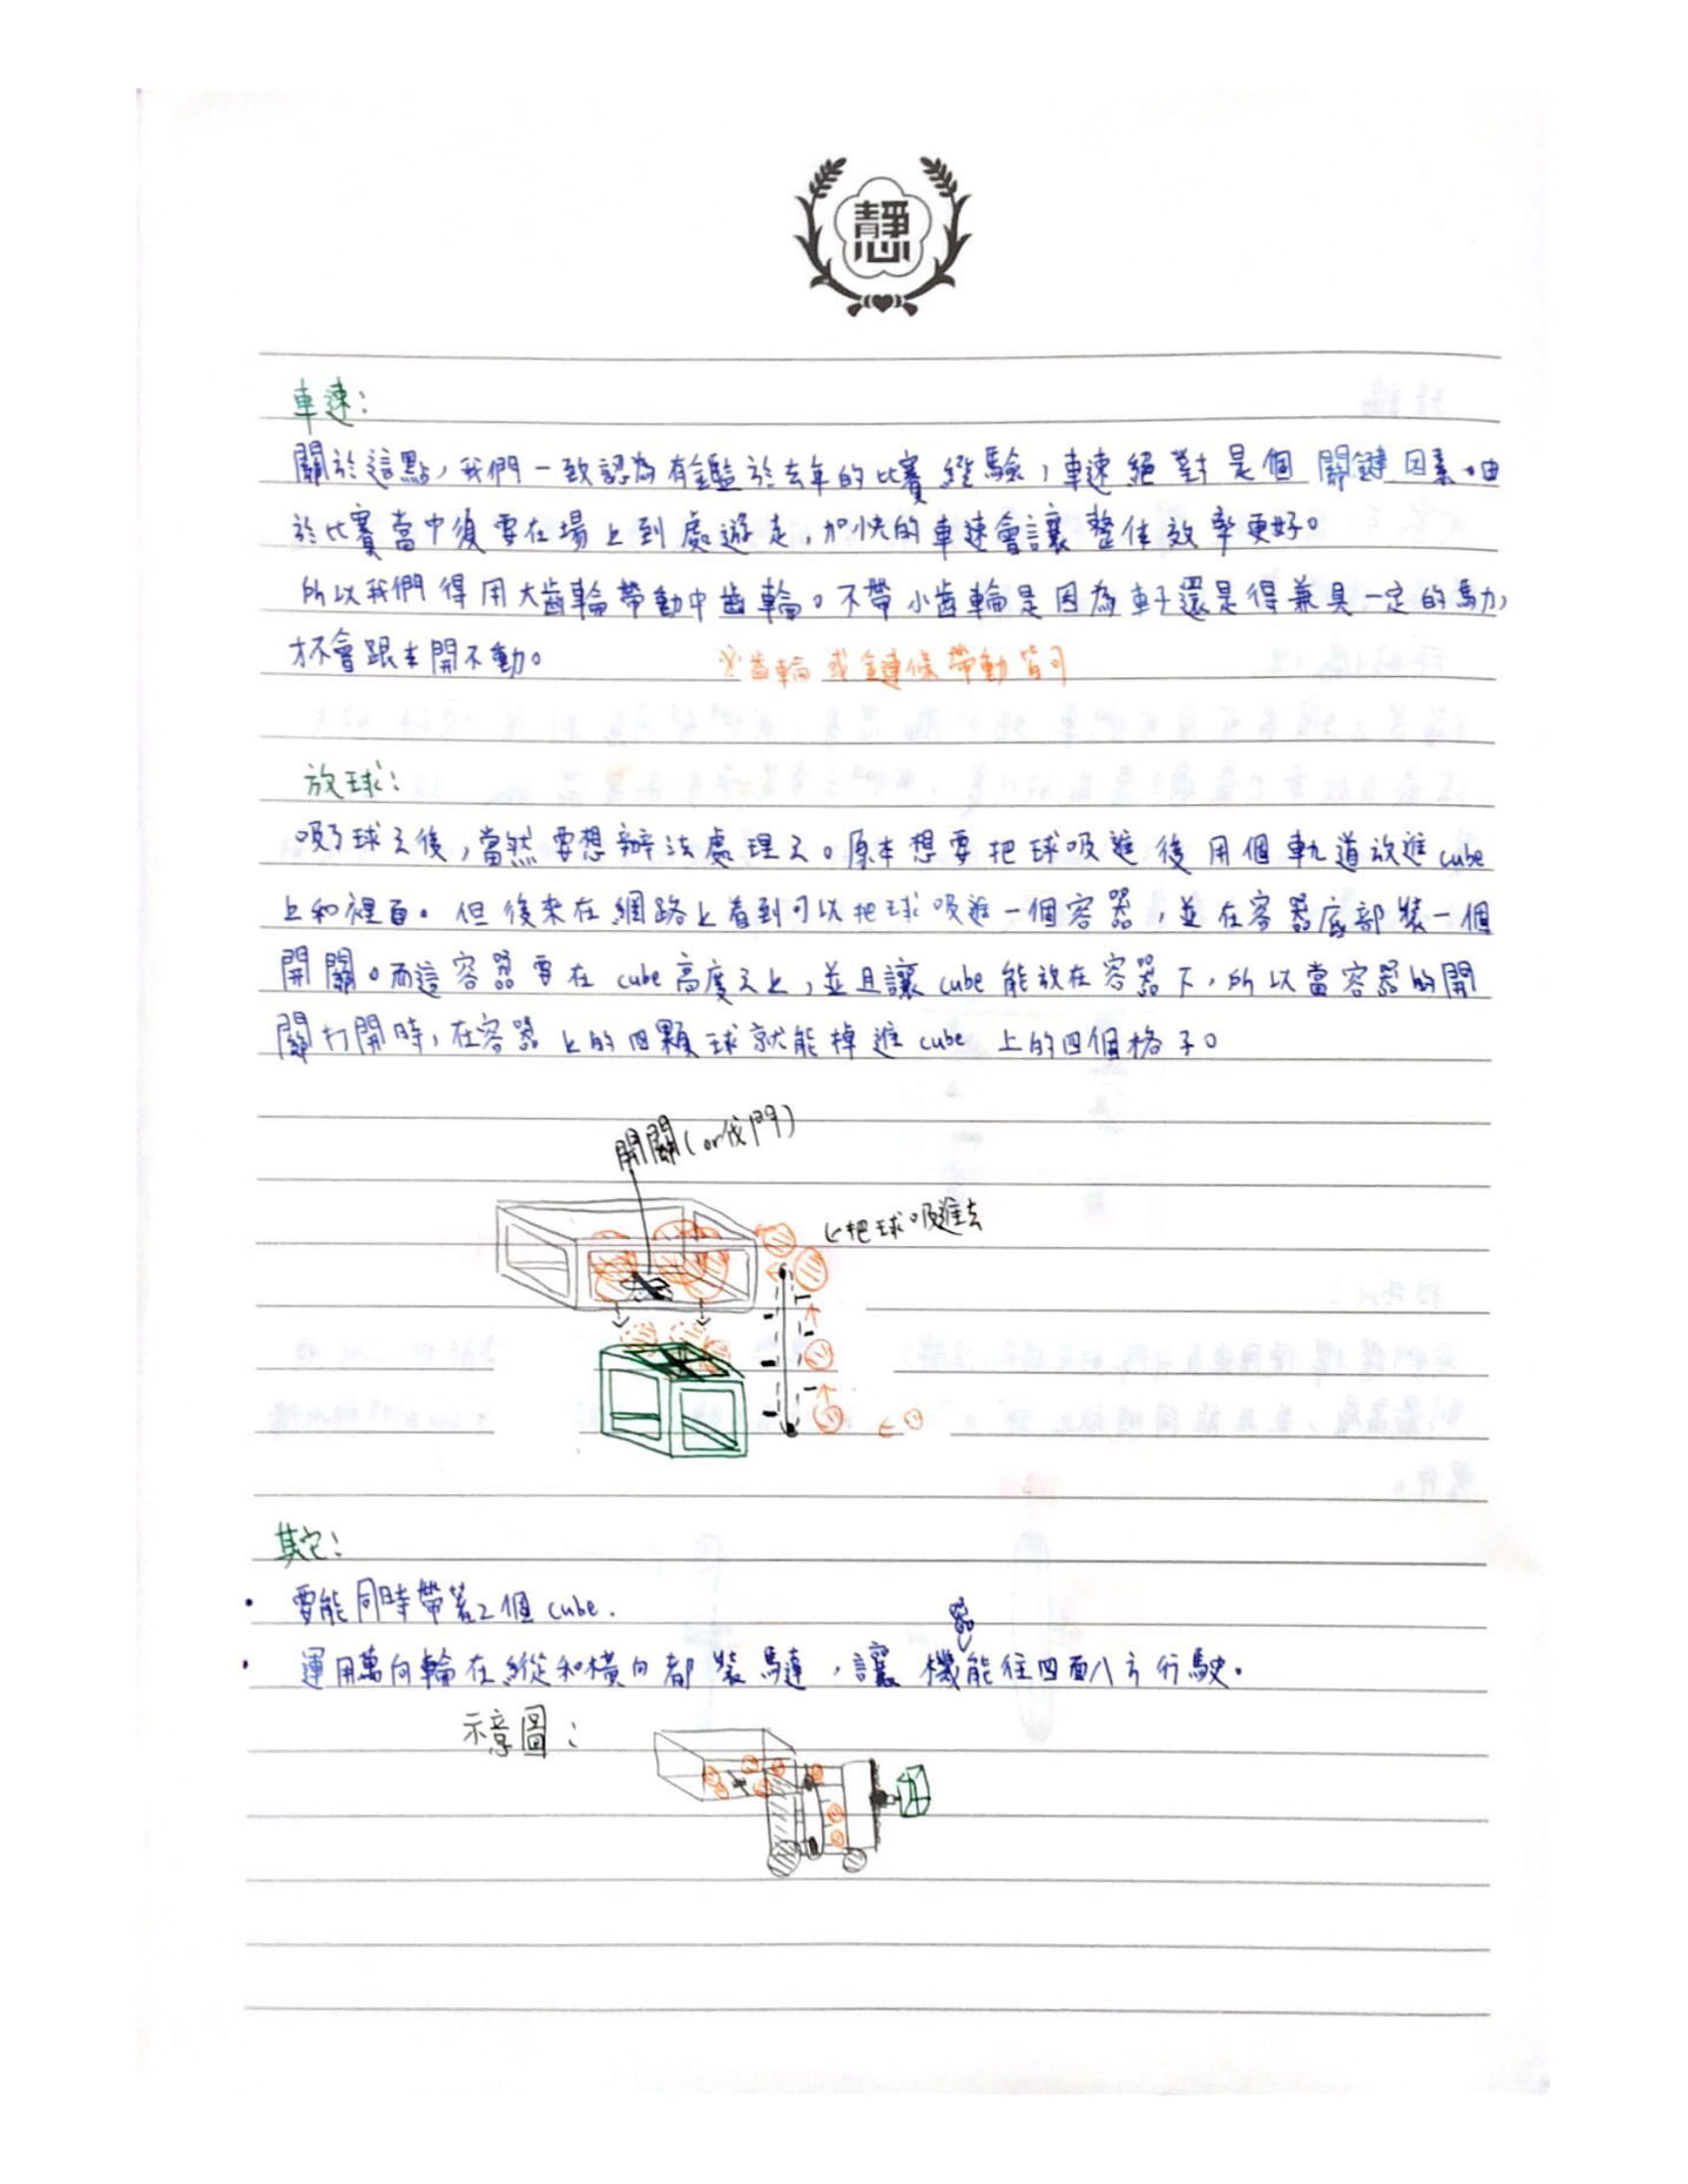 靜心
車速:
關於這點,我們一致認為有鑑於去年的比賽經驗,車速絕對是個關鍵因素。由
於比賽當中須要在場上到處遊走,加快的車速會讓整体效率更好。
所以我們得用大齒輪帶動中齒輪。不帶小齒輪是因為車子還是得兼具一定的馬力,
才不會跟本開不動。
※齒輪或鏈條帶動皆可
放球:
吸了球之後,當然要想辦法處理之。原本想要把球吸進後用個軌道放進cube
上和裡面。但後來在網路上看到可以把球吸進一個容器,並在容器底部裝一個
開關。而這容器要在cube高度之上,並且讓cube能放在容器下,所以當容器的開
關打開時,在容器上的四顆球就能掉進cube上的四個格子。
開關(or伐門)
把球吸進去
其它:
· 要能同時帶著2個cube.
· 運用萬向輪在縱和橫向都裝馬達,讓機器能往四面八方行駛。
示意圖: